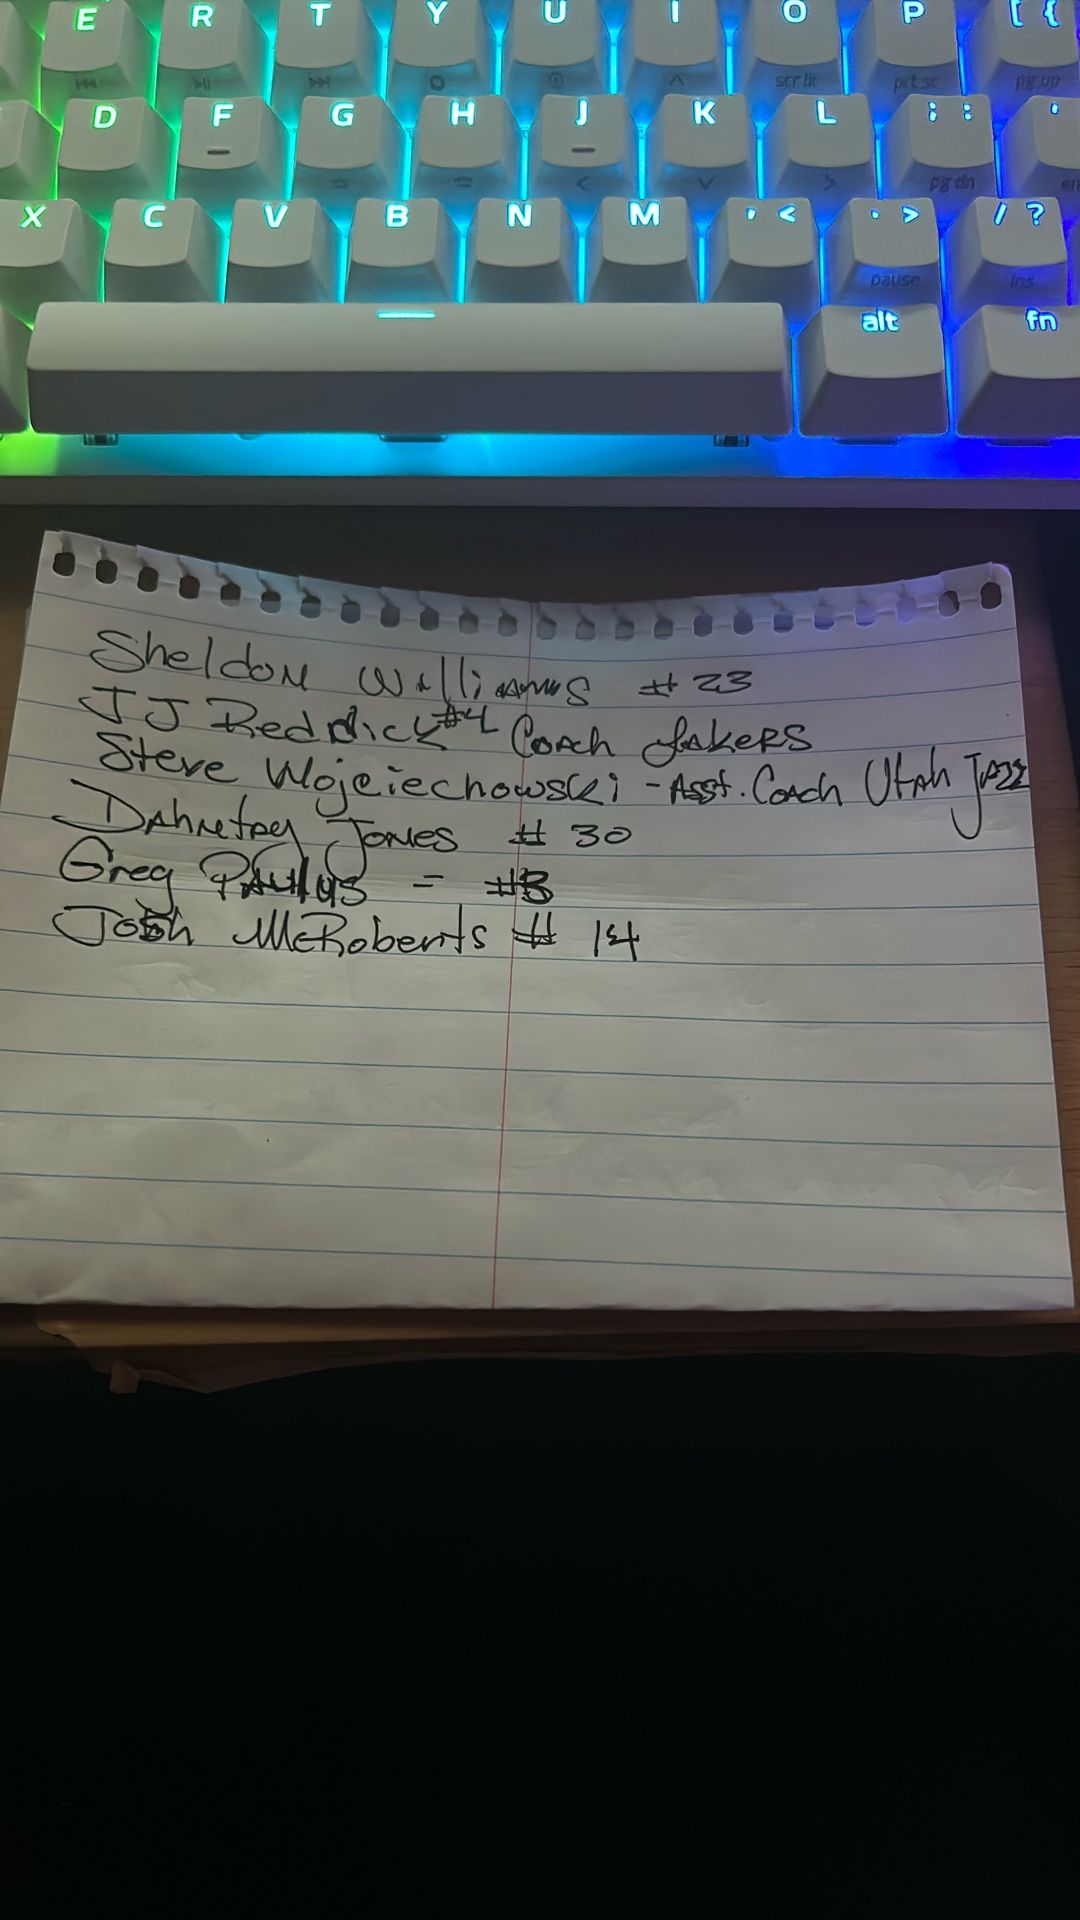 E R T Y U I O P [ {
scr lk prt sc pg up
D F G H J K L ; : '
pg dn
X C V B N M , < . > / ?
pause ins
alt fn
Sheldon Williams # 23
JJ Reddick #4 Coach Lakers
Steve Wojciechowski - Asst. Coach Utah Jazz
Dahntay Jones # 30
Greg Paulus = #3
Josh McRoberts # 14